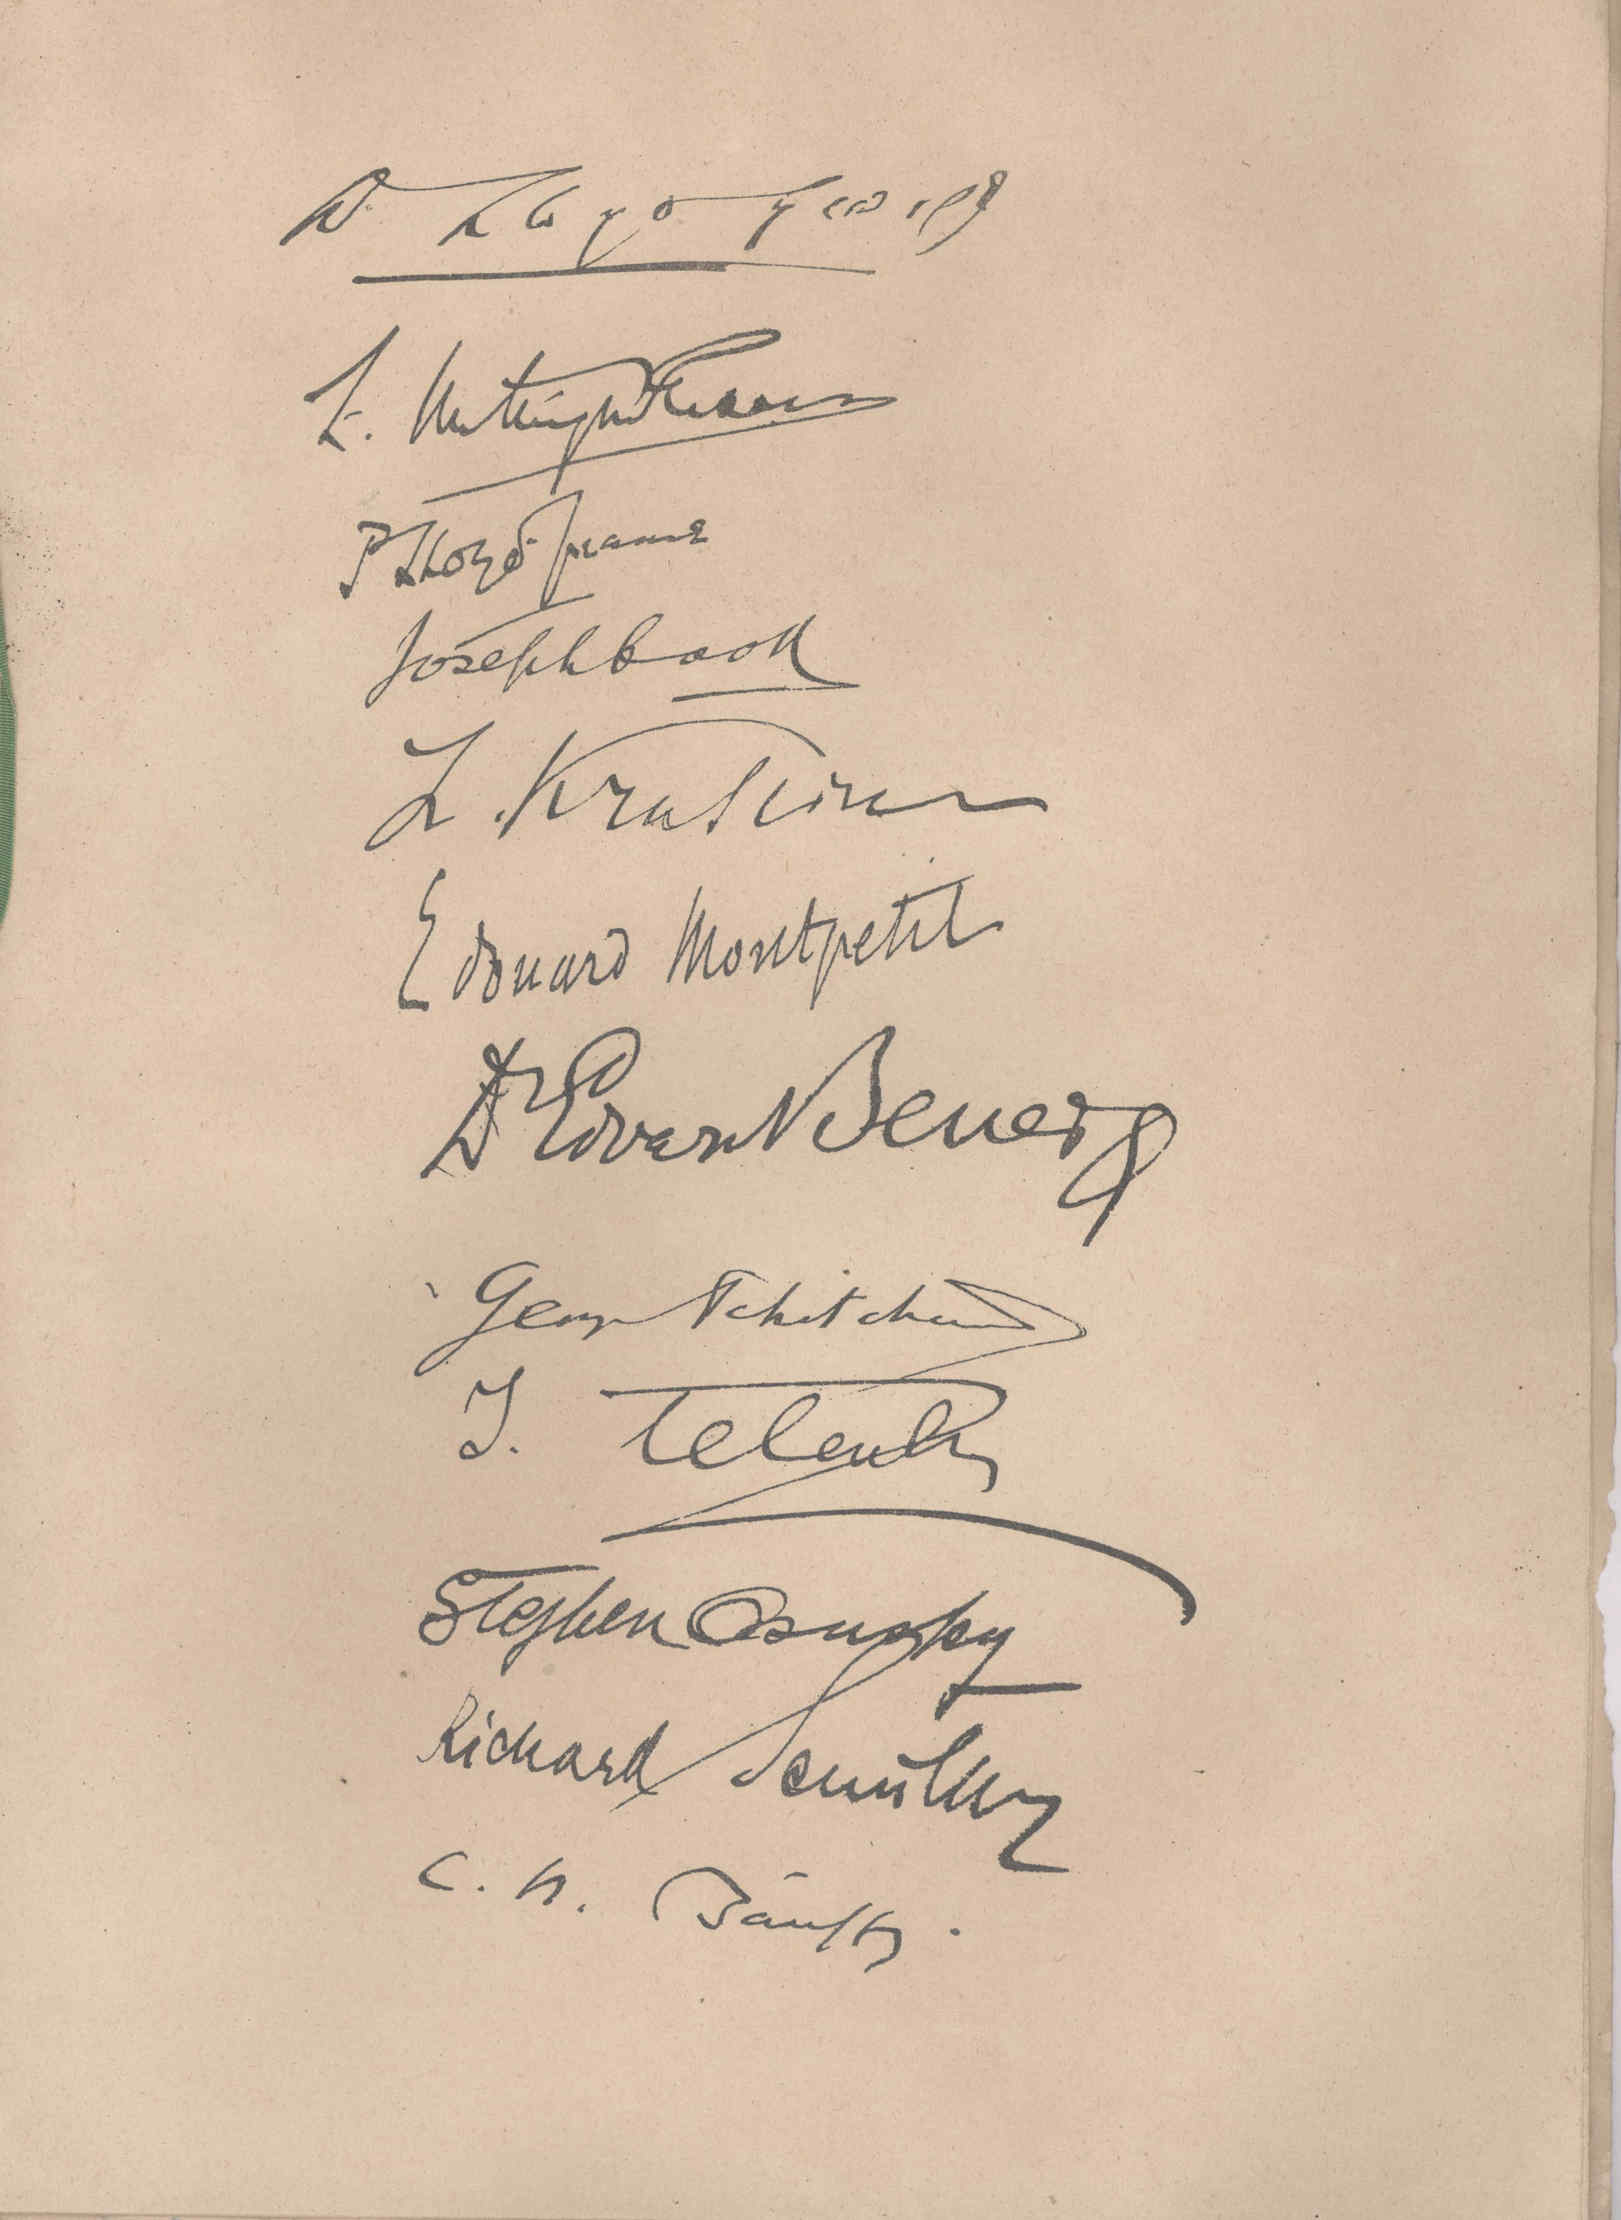 D. Lloyd George
L. Worthington Evans
P Lloyd Greame
Joseph Cook
L. Krassin
Edouard Montpetit
Dr Edvard Beneš
George Tchitcherin
J. Teleszky
Stephen Osusky
Richard Schüller
C. N. Bánffy.